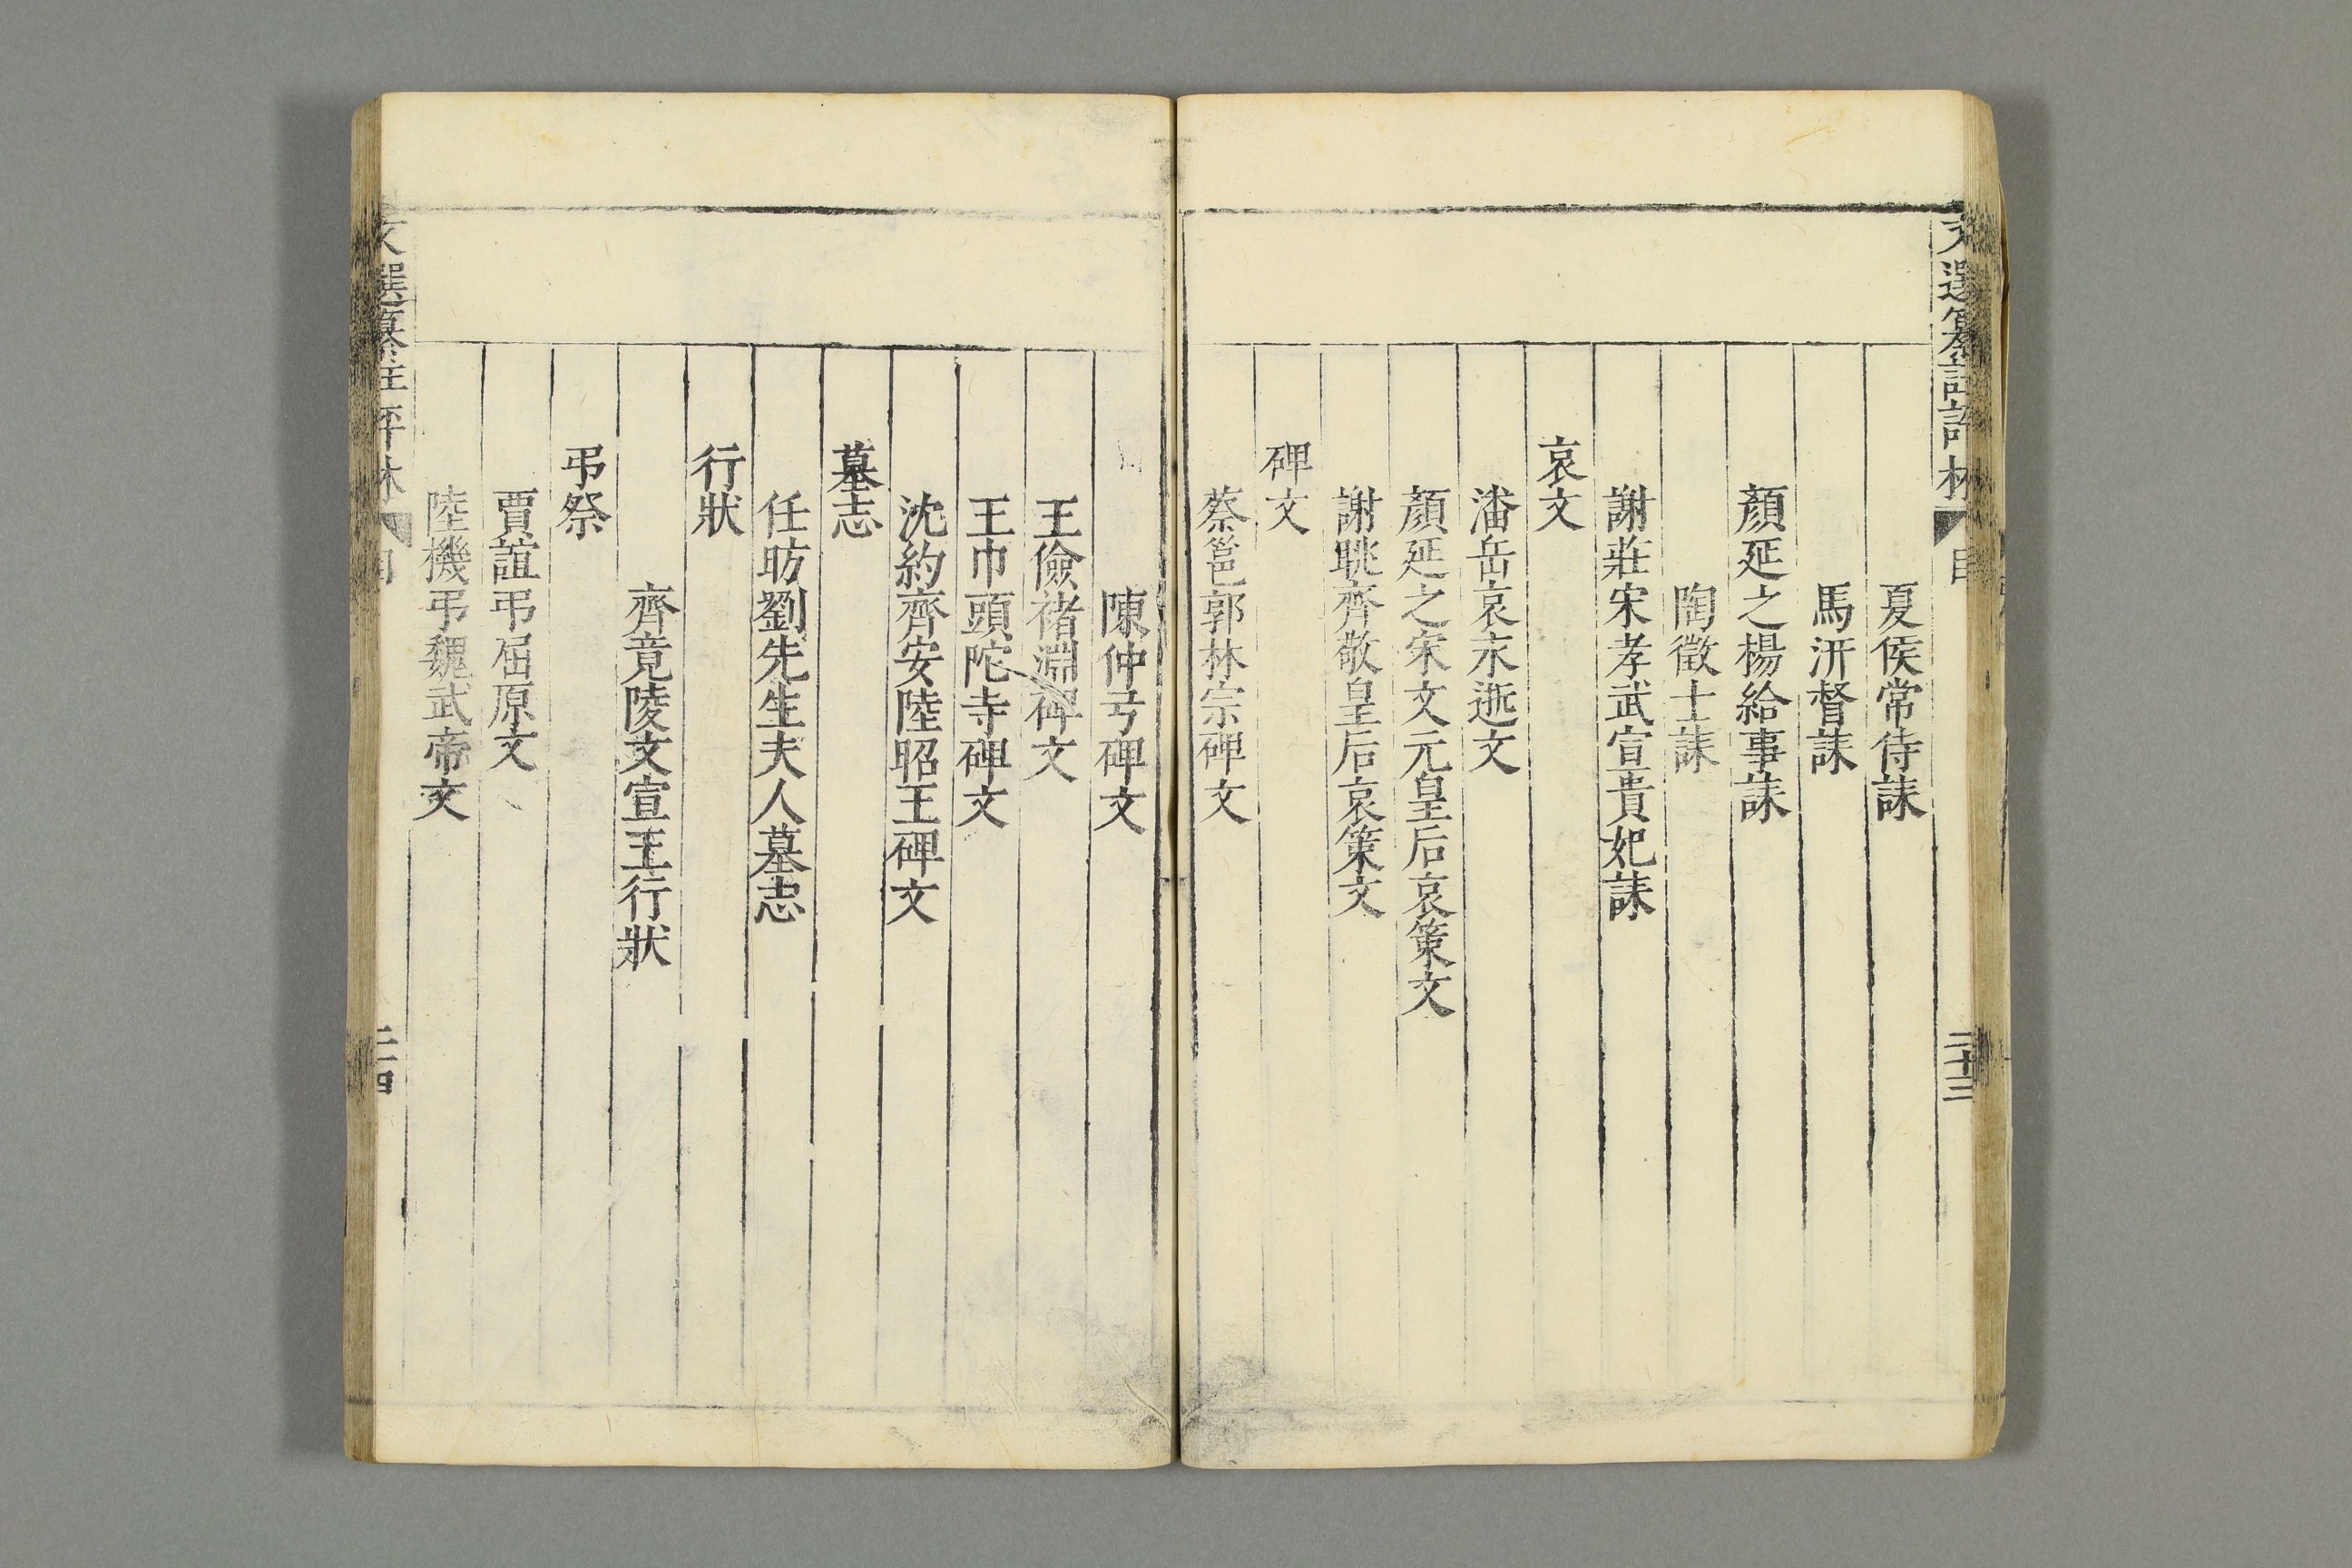 文選纂註評林
目
二十三
夏侯常侍誄
馬汧督誄
顏延之楊給事誄
陶徵士誄
謝莊宋孝武宣貴妃誄
哀文
潘岳哀永逝文
顏延之宋文元皇后哀策文
謝朓齊敬皇后哀策文
碑文
蔡邕郭林宗碑文
陳仲弓碑文
王儉褚淵碑文
王巾頭陀寺碑文
沈約齊安陸昭王碑文
墓志
任昉劉先生夫人墓志
行狀
齊竟陵文宣王行狀
弔祭
賈誼弔屈原文
陸機弔魏武帝文
文選纂註評林
目
二十四